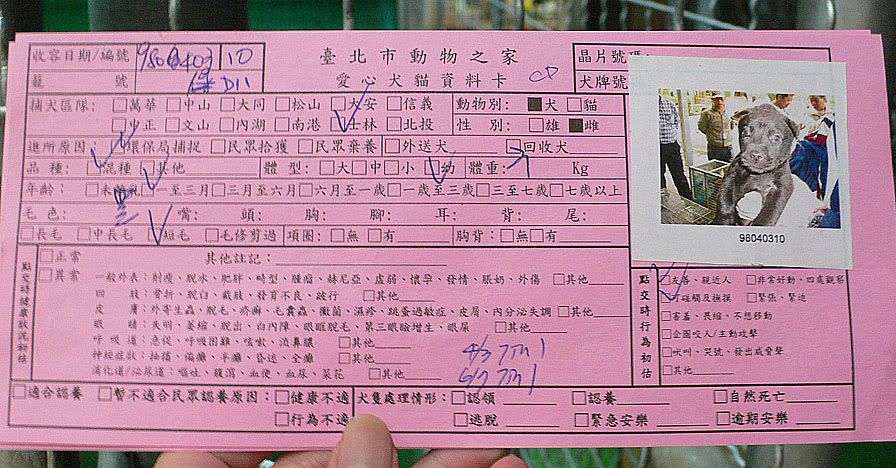 臺北市動物之家
愛心犬貓資料卡
收容日期/編號 980403 10
籠 號 D11
晶片號碼:
犬牌號
捕犬區隊: □萬華 □中山 □大同 □松山 □大安 □信義 動物別: ■犬 □貓
□中正 □文山 □內湖 □南港 □士林 □北投 性 別: □雄 ■雌
進所原因: □環保局捕捉 □民眾拾獲 □民眾棄養 □外送犬 □回收犬
品 種: □混種 □其他 體 型: □大 □中 □小 □幼 體重: Kg
年齡: □未 □一至三月 □三月至六月 □六月至一歲 □一歲至三歲 □三至七歲 □七歲以上
毛 色: 嘴: 頭: 胸: 腳: 耳: 背: 尾:
□長毛 □中長毛 □短毛 □毛修剪過 項圈: □無 □有 胸背: □無 □有
98040310
點交時健康狀況初估
□正常 其他註記:
□異常 一般外表: 削瘦、脫水、肥胖、畸型、腫瘤、赫尼亞、虛弱、懷孕、發情、脹奶、外傷 □其他
四 肢: 骨折、脫臼、截肢、發育不良、跛行 □其他
皮 膚: 外寄生蟲、脫毛、疥癬、毛囊蟲、黴菌、濕疹、跳蚤過敏症、皮屑、內分泌失調 □其他
眼 睛: 失明、萎縮、脫出、白內障、眼眶脫毛、第三眼瞼增生、眼屎 □其他
呼 吸 道: 急促、呼吸困難、咳嗽、流鼻膿 □其他
神經症狀: 抽搐、偏癱、半癱、昏迷、全癱 □其他
消化道/泌尿道: 嘔吐、腹瀉、血便、血尿、菜花 □其他
點交時行為初估
□友善、親近人 □非常好動、四處觀察
□可碰觸及撫摸 □緊張、緊迫
□害羞、畏縮、不想移動
□企圖咬人/主動攻擊
□吠叫、哭號、發出威脅聲
□其他
□適合認養 □暫不適合民眾認養原因: □健康不適 犬隻處理情形: □認領 □認養 □自然死亡
□行為不適 □逃脫 □緊急安樂 □逾期安樂